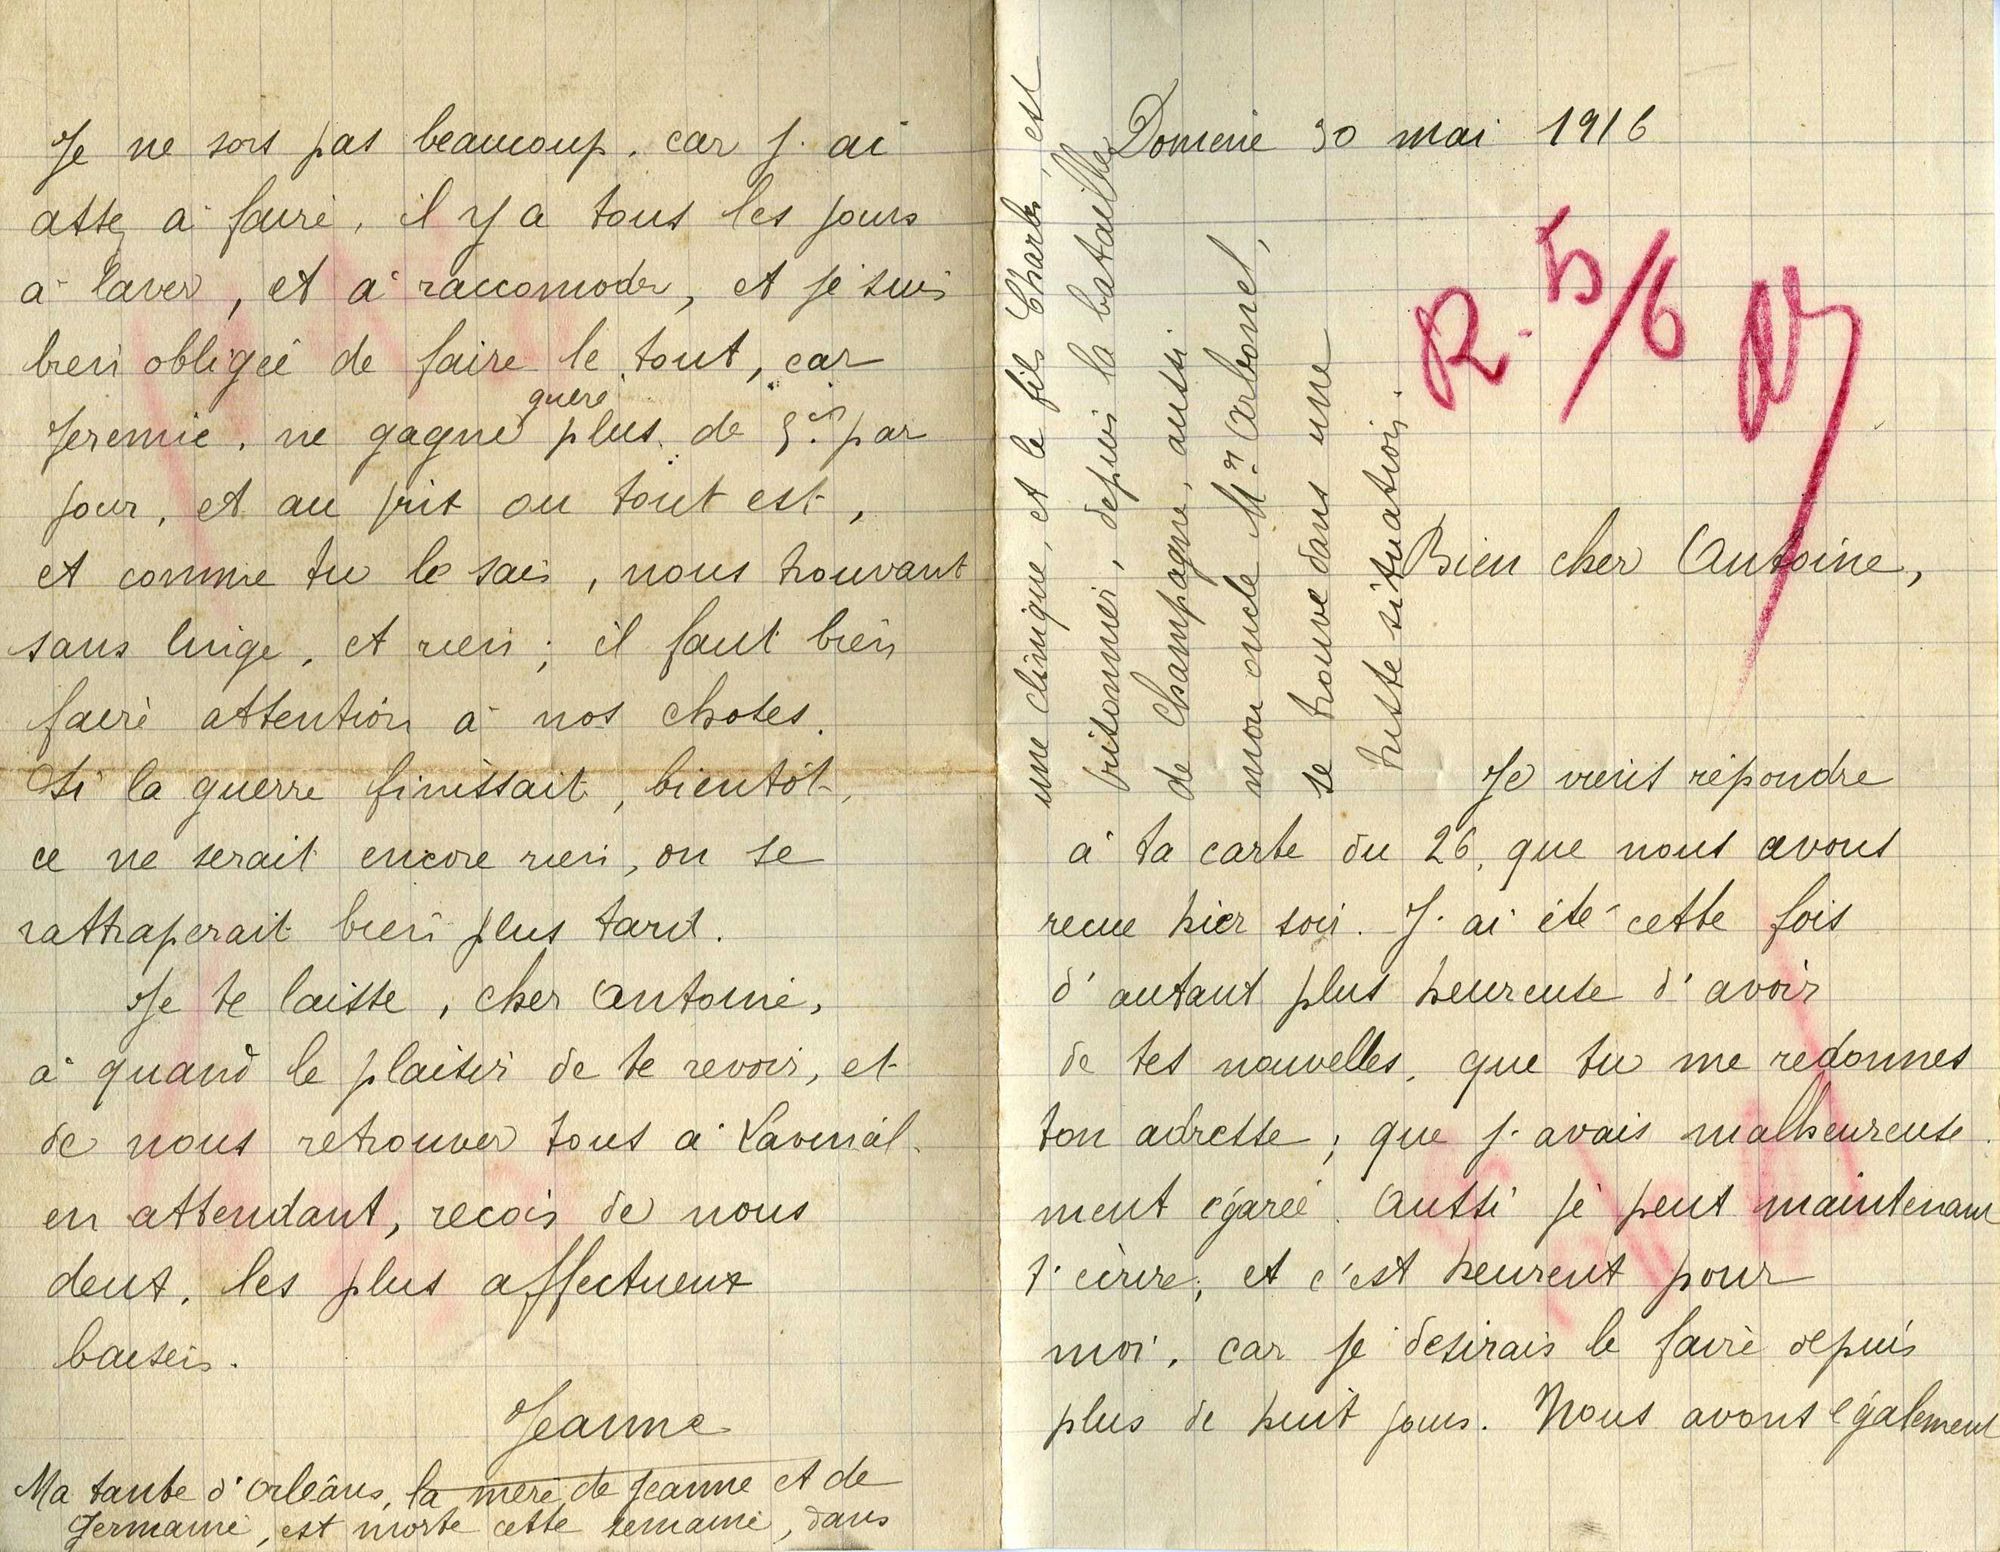 Domène 30 mai 1916
R. 5/6
Bien cher Antoine,
Je viens répondre
à ta carte du 26, que nous avons
recue hier soir. J. ai été cette fois
d'autant plus heureuse d'avoir
de tes nouvelles, que tu me redonnes
ton adresse ; que j. avais malheureuse-
ment égarée. Aussi je peus maintenant
t'écrire, et c'est heureut pour
moi, car je désirais le faire depuis
plus de huit jours. Nous avons également
Je ne sors pas beaucoup, car j. ai
assez à faire, il y a tous les jours
à laver, et à raccomoder, et je suis
bien obligée de faire le tout, car
Jeremie, ne gagne guère plus de 5.f par
jour, et au prit ou tout est,
et comme tu le sais, nous trouvant
sans linge, et rien ; il faut bien
faire attention à nos choses.
Si la guerre finissait, bientôt,
ce ne serait encore rien, on se
rattraperait bien plus tard.
Je te laisse, cher Antoine,
à quand le plaisir de te revoir, et
de nous retrouver tous à Lavenal.
en attendant, recois de nous
deux, les plus affectueux
baisers.
Jeanne
Ma tante d'Orléans, la mère de Jeanne et de
Germaine, est morte cette semaine, dans
une clinique, et le fils Charles, est
prisonnier, depuis la bataille
de Champagne, aussi
mon oncle Mr. Arbonel,
se trouve dans une
triste situation.